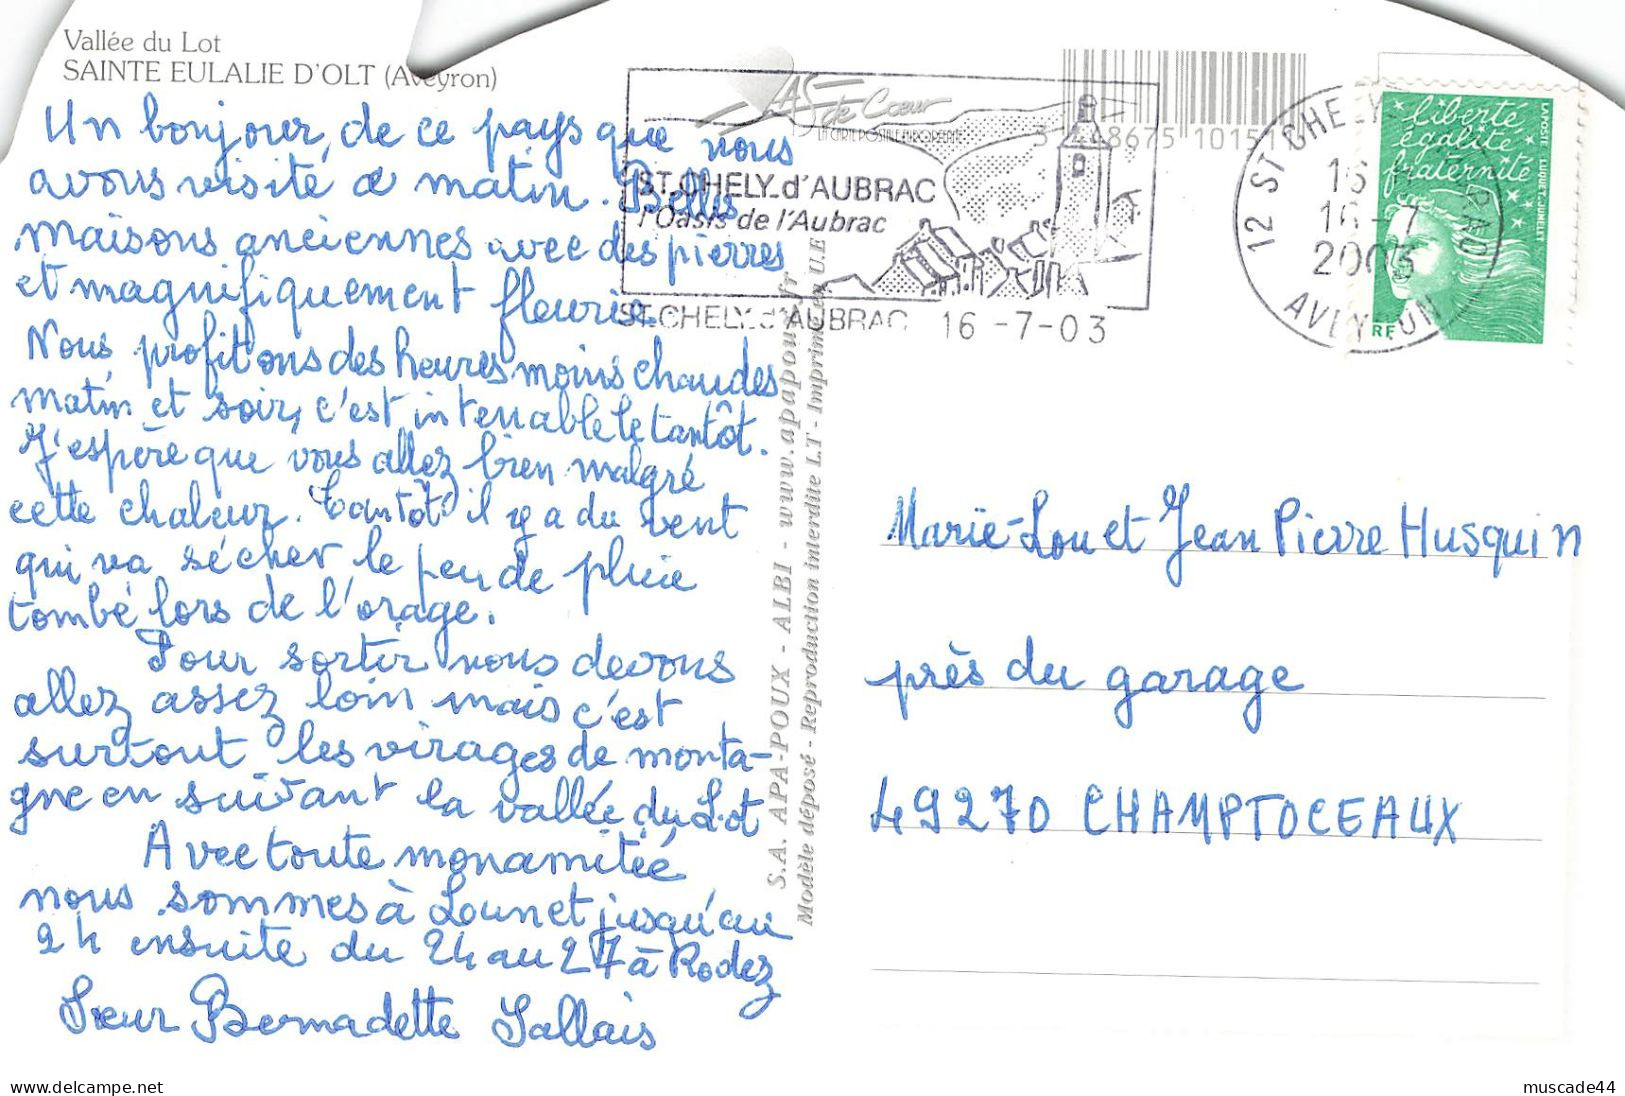 Vallée du Lot
SAINTE EULALIE D'OLT (Aveyron)
Un bonjour, de ce pays que nous
avons visité ce matin. Belles
maisons anciennes avec des pierres
et magnifiquement fleurie.
Nous profitons des heures moins chaudes
matin et soir, c'est intenable le tantôt.
J'espère que vous allez bien malgré
cette chaleur. Tantôt il y a du vent
qui va sécher le peu de pluie
tombé lors de l'orage.
Pour sortir nous devons
allez assez loin mais c'est
surtout les virages de monta-
gne en suivant la vallée du Lot
Avec toute mon amitié
nous sommes à Lunet jusqu'au
24 ensuite du 24 au 27 à Rodez
Sœur Bernadette Sallais
AS de Cœur
LA CARTE POSTALE EUROPEENNE
ST.CHELY.d'AUBRAC
l'Oasis de l'Aubrac
ST.CHELY.d'AUBRAC 16 -7-03
12 ST CHELY
16
16-7
2003
AVEYRON
liberté
égalité
fraternité
RF
LA POSTE LUQUET.JUMELET
S.A. APA-POUX - ALBI - www.apapoux.fr
Modèle déposé - Reproduction interdite L.T - Imprimé en U.E
Marie-Lou et Jean Pierre Husquin
près du garage
49270 CHAMPTOCEAUX
www.delcampe.net
muscade44